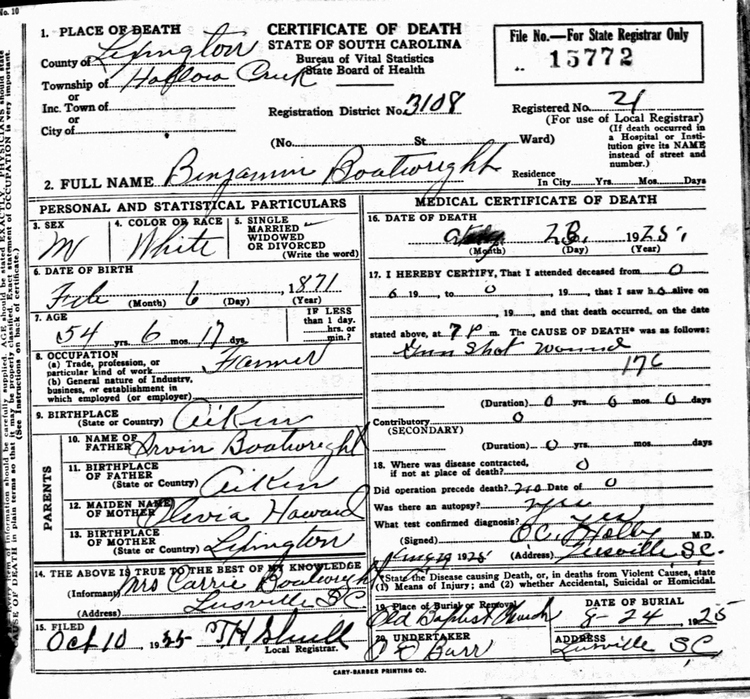 No. 10
1. PLACE OF DEATH
County of Lexington
Township of Hollow Creek
or
Inc. Town of
or
City of
CERTIFICATE OF DEATH
STATE OF SOUTH CAROLINA
Bureau of Vital Statistics
State Board of Health
Registration District No. 3108
File No.—For State Registrar Only
15772
Registered No. 21
(For use of Local Registrar)
(If death occurred in
a Hospital or Insti-
tution give its NAME
instead of street and
number.)
(No. St. Ward)
2. FULL NAME Benjamin Boatwright
Residence
In City Yrs. Mos. Days
PERSONAL AND STATISTICAL PARTICULARS
3. SEX
M
4. COLOR OR RACE
White
5. SINGLE
MARRIED
WIDOWED
OR DIVORCED
(Write the word)
6. DATE OF BIRTH
6 1871
(Month) (Day) (Year)
7. AGE
54 yrs. 6 mos. 17 dys.
IF LESS
than 1 day.
hrs. or
min.?
8. OCCUPATION
(a) Trade, profession, or
particular kind of work Farmer
(b) General nature of Industry,
business, or establishment in
which employed (or employer)
9. BIRTHPLACE
(State or Country) Aiken
PARENTS
10. NAME OF
FATHER Boatwright
11. BIRTHPLACE
OF FATHER
(State or Country) Aiken
12. MAIDEN NAME
OF MOTHER Olivia Howard
13. BIRTHPLACE
OF MOTHER
(State or Country) Lexington
14. THE ABOVE IS TRUE TO THE BEST OF MY KNOWLEDGE
(Informant) Mrs Carrie Boatwright
(Address) S.C
15. FILED Oct 10 19 T.H. Shull
Local Registrar.
MEDICAL CERTIFICATE OF DEATH
16. DATE OF DEATH
23, 1925
(Month) (Day) (Year)
17. I HEREBY CERTIFY, That I attended deceased from 0
19 , to 0 , 19 , that I saw h alive on
, 19 , and that death occurred, on the date
stated above, at 7 P m. The CAUSE OF DEATH* was as follows:
Gun Shot wound
176
(Duration) 0 yrs. 0 mos. 0 days
Contributory 0
(SECONDARY)
(Duration) 0 yrs. mos. days
18. Where was disease contracted,
if not at place of death? 0
Did operation precede death? no Date of 0
Was there an autopsy?
What test confirmed diagnosis?
(Signed) M.D.
19 (Address) S.C.
*State the Disease causing Death, or, in deaths from Violent Causes, state
(1) Means of Injury; and (2) whether Accidental, Suicidal or Homicidal.
19. Place of Burial or Removal
Old Baptist Church
DATE OF BURIAL
8-24 1925
20. UNDERTAKER
Barr
ADDRESS
S,C,
CARY-BARBER PRINTING CO.